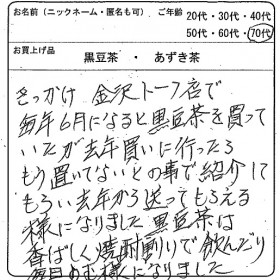 お名前(ニックネーム・匿名も可) ご年齢 20代・30代・40代
50代・60代・70代
お買上げ品
黒豆茶 ・ あずき茶
きっかけ 金沢トーフ店で
毎年6月になると黒豆茶を買って
いたが去年買いに行ったら
もう置いてないとの事で紹介して
もらい去年から送ってもらえる
様になりました 黒豆茶は
香ばしく焼酎割りで飲んだり
毎日のむ様になりました